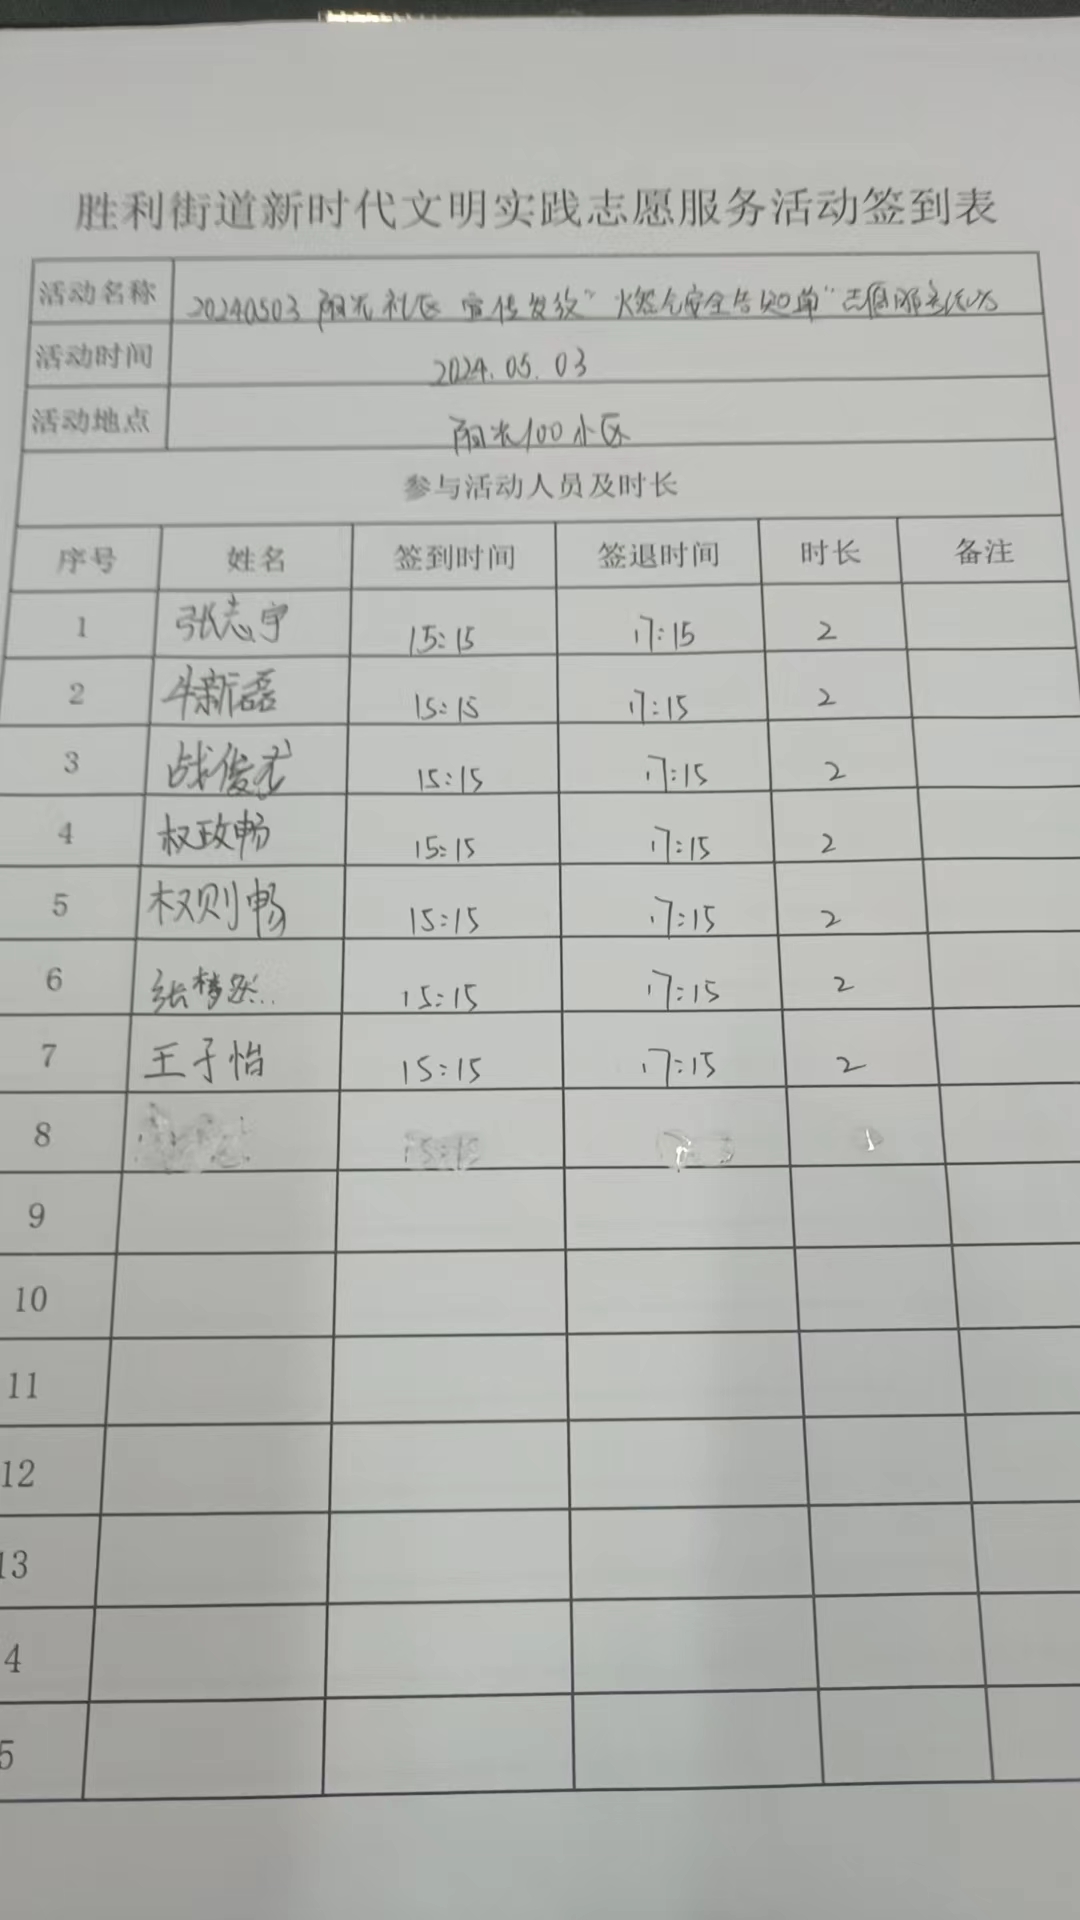 胜利街道新时代文明实践志愿服务活动签到表
活动名称 20240503 阳光社区 宣传发放"燃气安全告知单"志愿服务活动
活动时间 2024.05.03
活动地点 阳光100小区
参与活动人员及时长
序号 姓名 签到时间 签退时间 时长 备注
1 张志宇 15:15 17:15 2
2 牛新磊 15:15 17:15 2
3 战俊 15:15 17:15 2
4 权政畅 15:15 17:15 2
5 权则畅 15:15 17:15 2
6 张梦 15:15 17:15 2
7 王子怡 15:15 17:15 2
8 15:15
9
10
11
12
13
4
5